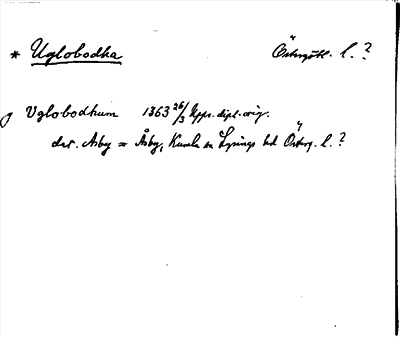 * Uglobodha Östergötl. l. ?
g Uglobodhum 1363 26/3 Upps. dipl. orig.
det. Asby = Åby, Kumla sn Lysings hd Österg. l. ?